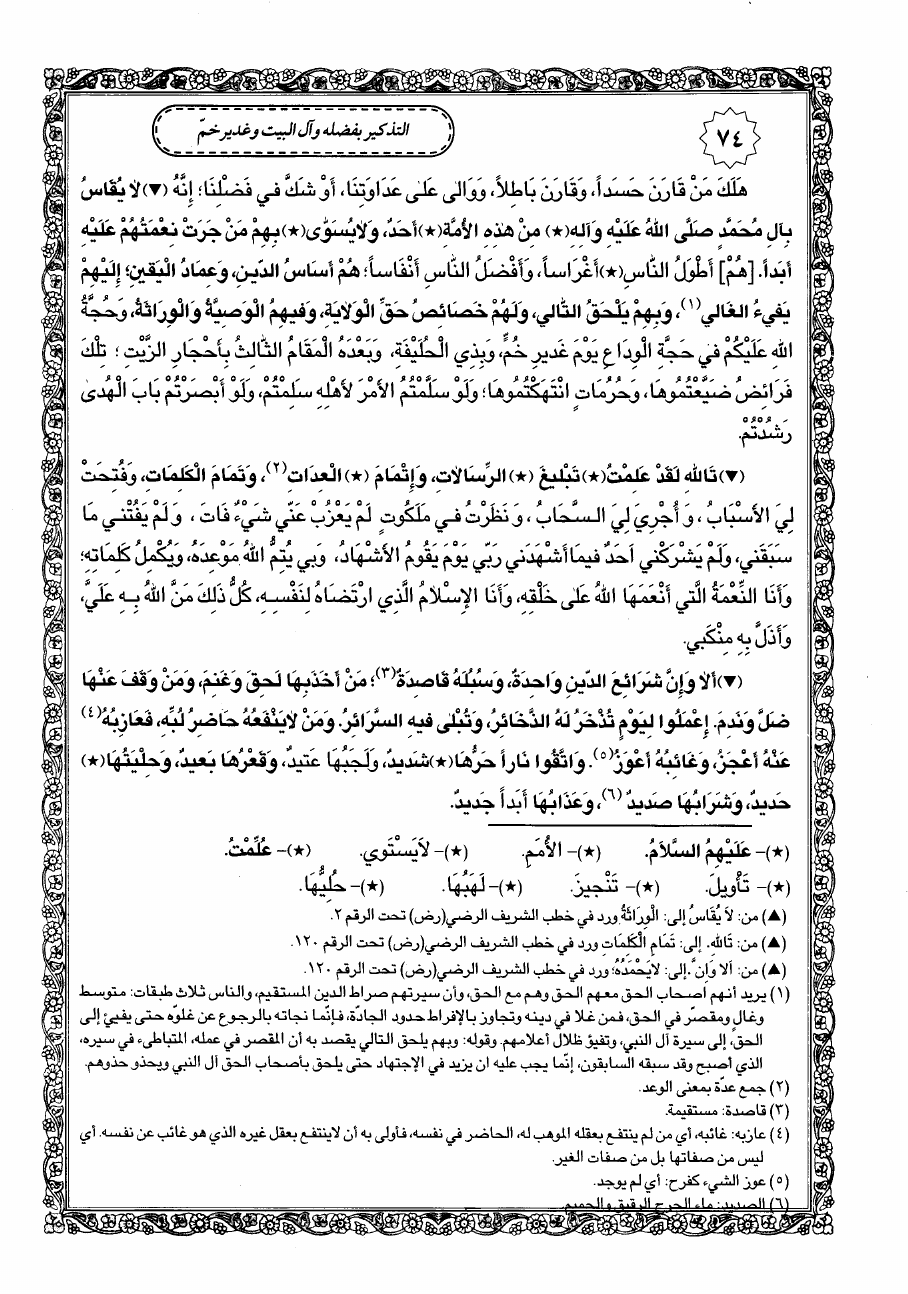 ٧٤
التذكير بفضله وآل البيت وغدير خمّ
هَلَكَ مَنْ قَارَنَ حَسَداً، وَقَارَنَ بَاطِلاً، وَوَالَى عَلَى عَدَاوَتِنَا، أَوْ شَكَّ في فَضْلِنَا؛ إِنَّهُ (▼) لاَ يُقَاسُ
بِآلِ مُحَمَّدٍ صَلَّى اللهُ عَلَيْهِ وَآلِهِ(★) مِنْ هذِهِ الأُمَّةِ(★)أَحَدٌ، وَلاَيُسَوَّى(★)بِهِمْ مَنْ جَرَتْ نِعْمَتُهُمْ عَلَيْهِ
أَبَداً. [هُمْ] أَطْوَلُ النَّاسِ(★)أَغْرَاساً، وَأَفْضَلُ النَّاسِ أَنْفَاساً؛ هُمْ أَسَاسُ الدّينِ، وَعِمَادُ الْيَقينِ؛ إِلَيْهِمْ
يَفيءُ الْغَالي(١)، وَبِهِمْ يَلْحَقُ التَّالي، وَلَهُمْ خَصَائِصُ حَقِّ الْوِلاَيَةِ، وَفيهِمُ الْوَصِيَّةُ وَالْوِرَاثَةُ، وَحُجَّةُ
اللهِ عَلَيْكُمْ في حَجَّةِ الْوِدَاعِ يَوْمَ غَديرِ خُمٍّ، وَبِذِي الْحُلَيْفَةِ، وَبَعْدَهُ الْمَقَامُ الثَّالِثُ بِأَحْجَارِ الزَّيْتِ؛ تِلْكَ
فَرَائِضُ ضَيَّعْتُمُوهَا، وَحُرُمَاتٍ انْتَهَكْتُمُوهَا؛ وَلَوْ سَلَّمْتُمُ الأَمْرَ لأَهْلِهِ سَلِمْتُمْ، وَلَوْ أَبْصَرْتُمْ بَابَ الْهُدىٰ
رَشُدْتُمْ.
(▼) تَاللهِ لَقَدْ عَلِمْتُ(★) تَبْليغَ (★) الرِّسَالاَتِ، وَإِتْمَامَ (★) الْعِدَاتِ(٢)، وَتَمَامَ الْكَلِمَاتِ، وَفُتِحَتْ
لِيَ الأَسْبَابُ، وَأُجْرِيَ لِيَ السَّحَابُ، وَنَظَرْتُ في مَلَكُوتٍ لَمْ يَعْزُبْ عَنّي شَيْءٌ فَاتَ، وَلَمْ يَفُتْني مَا
سَبَقَني، وَلَمْ يَشْرَكْني أَحَدٌ فيمَا أَشْهَدَني رَبّي يَوْمَ يَقُومُ الأَشْهَادُ، وَبي يُتِمُّ اللهُ مَوْعِدَهُ، وَيُكْمِلُ كَلِمَاتِهِ؛
وَأَنَا النِّعْمَةُ الَّتي أَنْعَمَهَا اللهُ عَلى خَلْقِهِ، وَأَنَا الإِسْلاَمُ الَّذِي ارْتَضَاهُ لِنَفْسِهِ، كُلُّ ذلِكَ مَنَّ اللهُ بِهِ عَلَيَّ،
وَأَذَلَّ بِهِ مِنْكَبي.
(▼)أَلاَ وَإِنَّ شَرَائِعَ الدّينِ وَاحِدَةٌ، وَسُبُلَهُ قَاصِدَةٌ(٣)؛ مَنْ أَخَذَ بِهَا لَحِقَ وَغَنِمَ، وَمَنْ وَقَفَ عَنْهَا
ضَلَّ وَنَدِمَ. إِعْمَلُوا لِيَوْمٍ تُذْخَرُ لَهُ الذَّخَائِرُ، وَتُبْلى فيهِ السَّرَائِرُ. وَمَنْ لاَيَنْفَعُهُ حَاضِرُ لُبِّهِ، فَعَازِبُهُ(٤)
عَنْهُ أَعْجَزُ، وَغَائِبُهُ أَعْوَزُ(٥). وَاتَّقُوا نَاراً حَرُّهَا(★)شَديدٌ، وَلَجَبُهَا عَتيدٌ، وَقَعْرُهَا بَعيدٌ، وَحِلْيَتُهَا(★)
حَديدٌ، وَشَرَابُهَا صَديدٌ(٦)، وَعَذَابُهَا أَبَداً جَديدٌ.
(★)- عَلَيْهِمُ السَّلاَمُ. (★)- الأُمَمِ. (★)- لاَيَسْتَوي. (★)- عُلِّمْتُ.
(★)- تَأْويلَ. (★)- تَنْجيزَ. (★)- لَهَبُهَا. (★)- حُلِيُّهَا.
(▲) من: لاَ يُقَاسُ إلى: الْوِرَاثَةُ ورد في خطب الشريف الرضي(رض) تحت الرقم ٢.
(▲) من: تَاللهِ. إلى: تَمَامِ الْكَلِمَاتِ ورد في خطب الشريف الرضي(رض) تحت الرقم ١٢٠.
(▲) من: أَلاَ وَإِنَّ.إلى: لاَيَحْمَدُهُ؛ ورد في خطب الشريف الرضي(رض) تحت الرقم ١٢٠.
(١) يريد أنهم أصحاب الحق معهم الحق وهم مع الحق، وأن سيرتهم صراط الدين المستقيم، والناس ثلاث طبقات: متوسط
وغالٍ ومقصّر في الحق، فمن غلا في دينه وتجاوز بالإفراط حدود الجادّة، فإنّما نجاته بالرجوع عن غلوّه حتى يفيئ إلى
الحق، إلى سيرة آل النبي، وتفيؤ ظلال أعلامهم. وقوله: وبهم يلحق التالي يقصد به أن المقصر في عمله، المتباطىء في سيره،
الذي أصبح وقد سبقه السابقون، إنّما يجب عليه ان يزيد في الإجتهاد حتى يلحق بأصحاب الحق آل النبي ويحذو حذوهم.
(٢) جمع عدّة بمعنى الوعد.
(٣) قاصدة: مستقيمة.
(٤) عازبه: غائبه، أي من لم ينتفع بعقله الموهب له، الحاضر في نفسه، فأولى به أن لاينتفع بعقل غيره الذي هو غائب عن نفسه. أي
ليس من صفاتها بل من صفات الغير.
(٥) عوز الشيء كفرح: أي لم يوجد.
(٦) الصديد: ماء الجرح الرقيق والحميم.